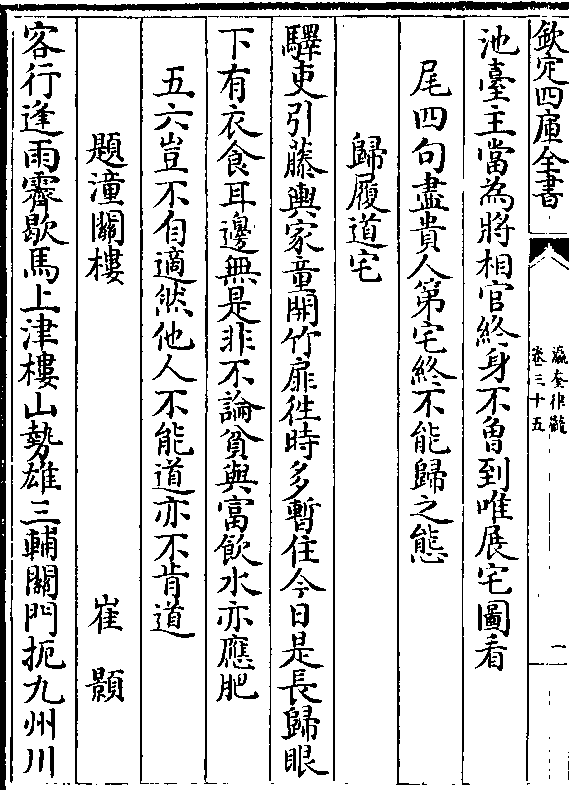 欽定四庫全書
瀛奎律髓
卷三十五
一
池臺主當為將相官終身不曾到唯展宅圖看
尾四句盡貴人第宅終不能歸之態
歸履道宅
驛吏引藤輿家童開竹扉徃時多暫住今日是長歸眼
下有衣食耳邊無是非不論貧與富飲水亦應肥
五六豈不自適然他人不能道亦不肯道
題潼關樓 崔顥
客行逢雨霽歇馬上津樓山勢雄三輔關門扼九州川